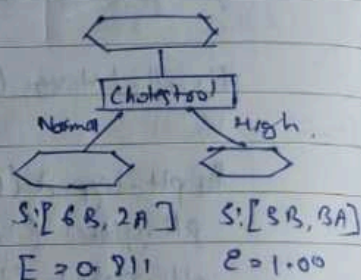 Cholestrol
Normal High.
S:[6B, 2A] S:[3B, 3A]
E = 0.811 E = 1.00